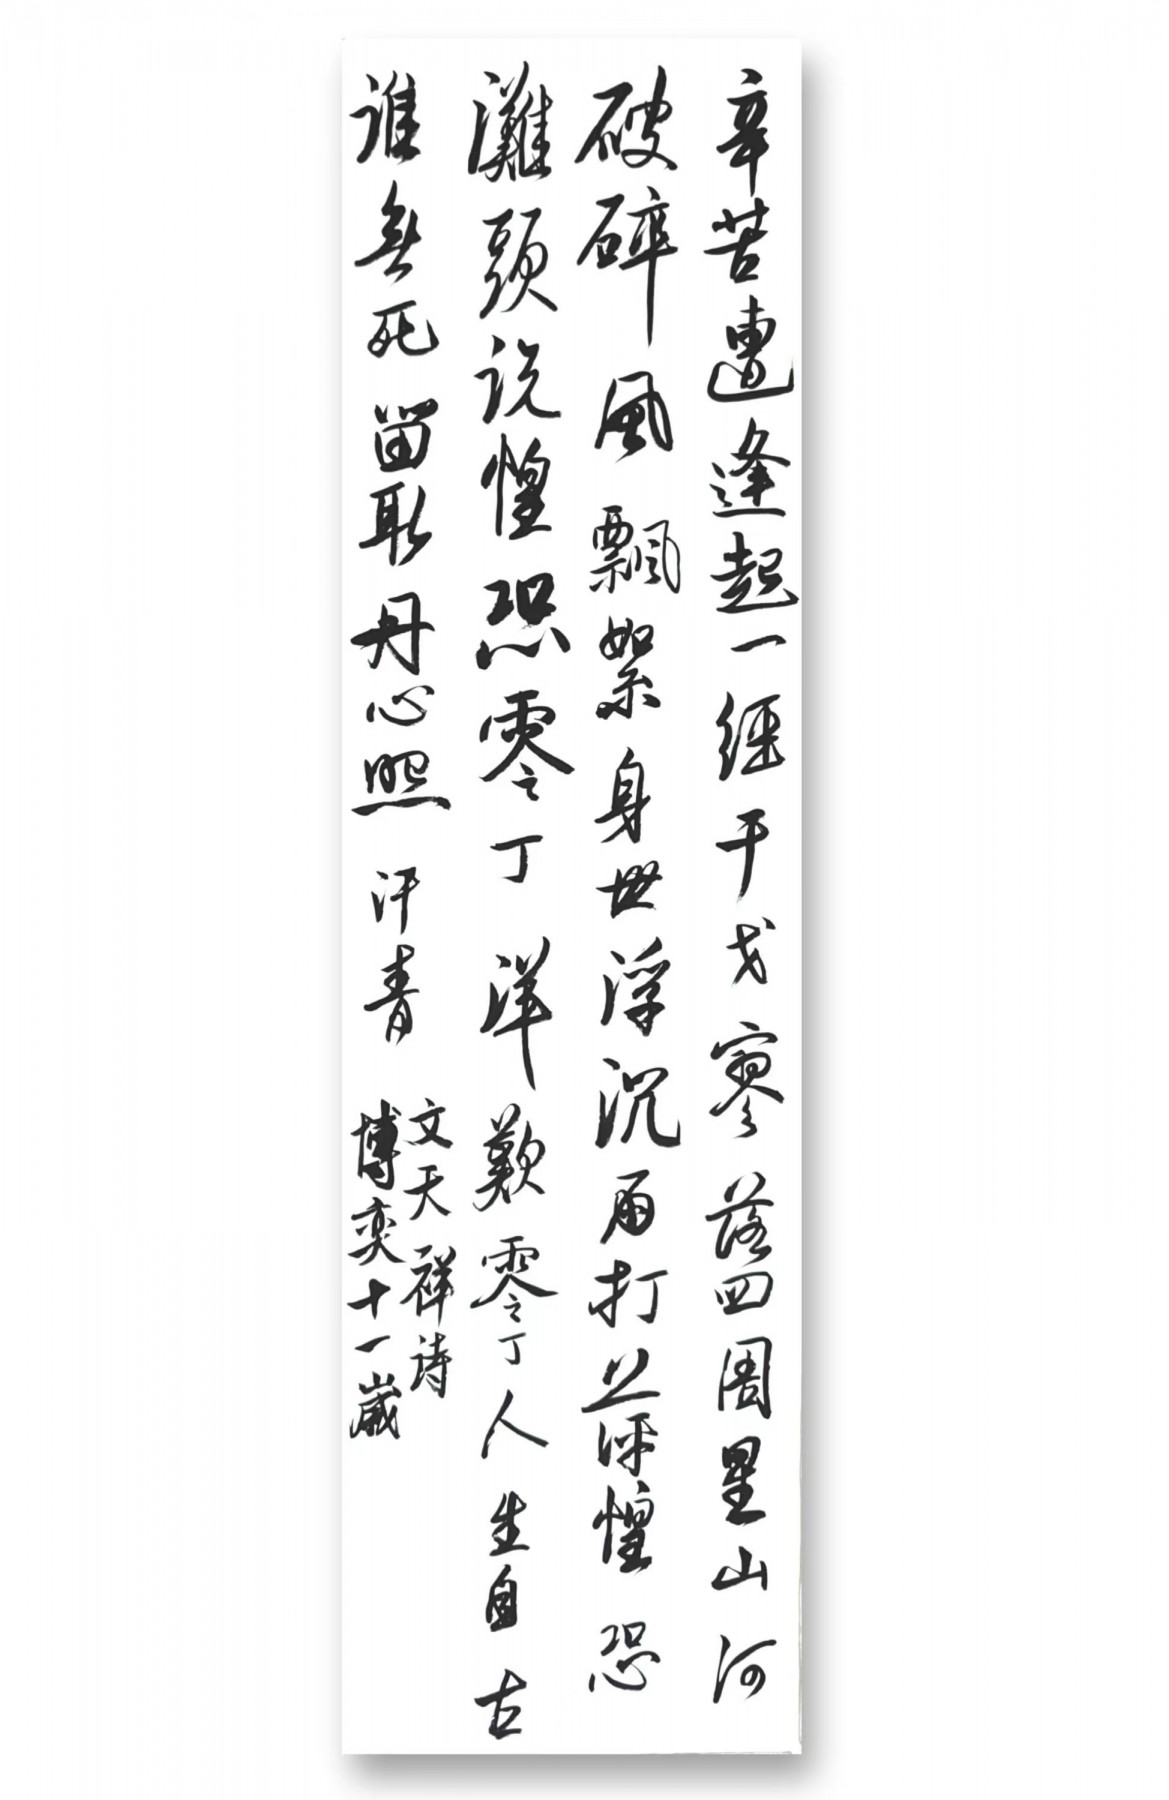 辛苦遭逢起一經干戈寥落四周星山河
破碎風飄絮身世浮沉雨打萍惶恐
灘頭説惶恐零丁洋歎零丁人生自古
誰無死留取丹心照汗青
文天祥詩
博奕十一歲